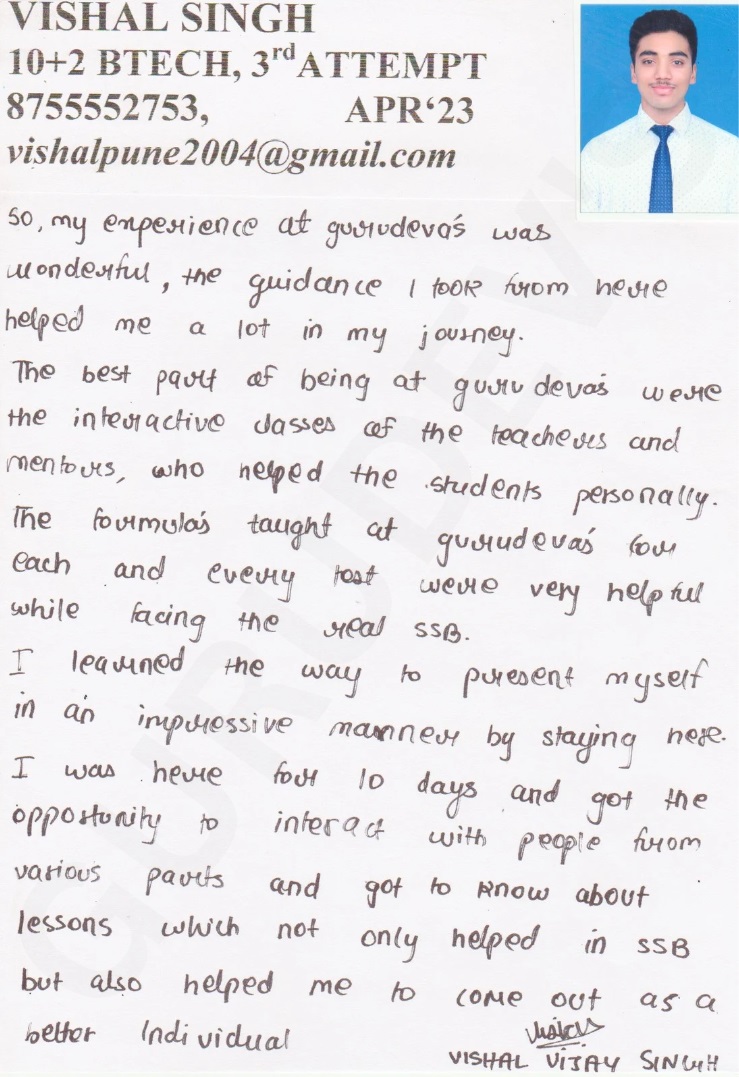 VISHAL SINGH
10+2 BTECH, 3rd ATTEMPT
8755552753, APR‘23
vishalpune2004@gmail.com
So, my experience at gurudeva's was
wonderful, the guidance I took from here
helped me a lot in my journey.
The best part of being at gurudeva's were
the interactive classes of the teachers and
mentors, who helped the students personally.
The formula's taught at gurudeva's for
each and every test were very helpful
while facing the real SSB.
I learned the way to present myself
in an impressive manner by staying here.
I was here for 10 days and got the
opportunity to interact with people from
various parts and got to know about
lessons which not only helped in SSB
but also helped me to come out as a
better Individual
VISHAL VIJAY SINGH
GURUDEV